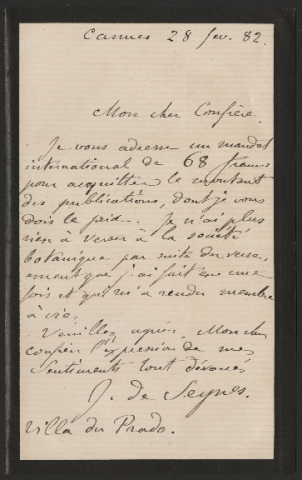 Cannes 28 fev. 82.
Mon cher Confrère.
Je vous adresse un mandat
international de 68 francs
pour acquitter le montant
des publications, dont je vous
dois le prix. Je n'ai plus
rien à verser à la société
botanique par suite du verse-
ment que j'ai fait en une
fois et qui m'a rendu membre
à vie.
Veuillez agréer Mon cher
confrère l'expression de mes
sentiments tout dévoués
J. de Seynes.
Villa du Prado.